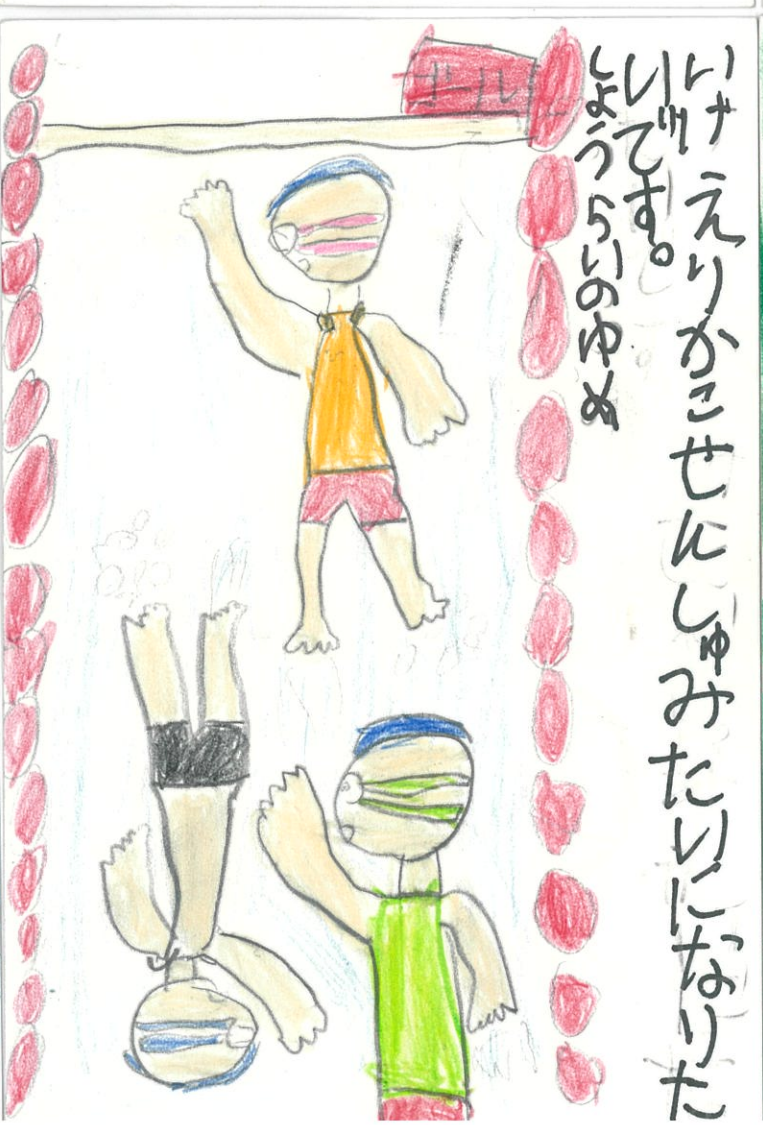 いけ えりかこせんしゅみたいになりた
いです。
しょうらいのゆめ
ゴール